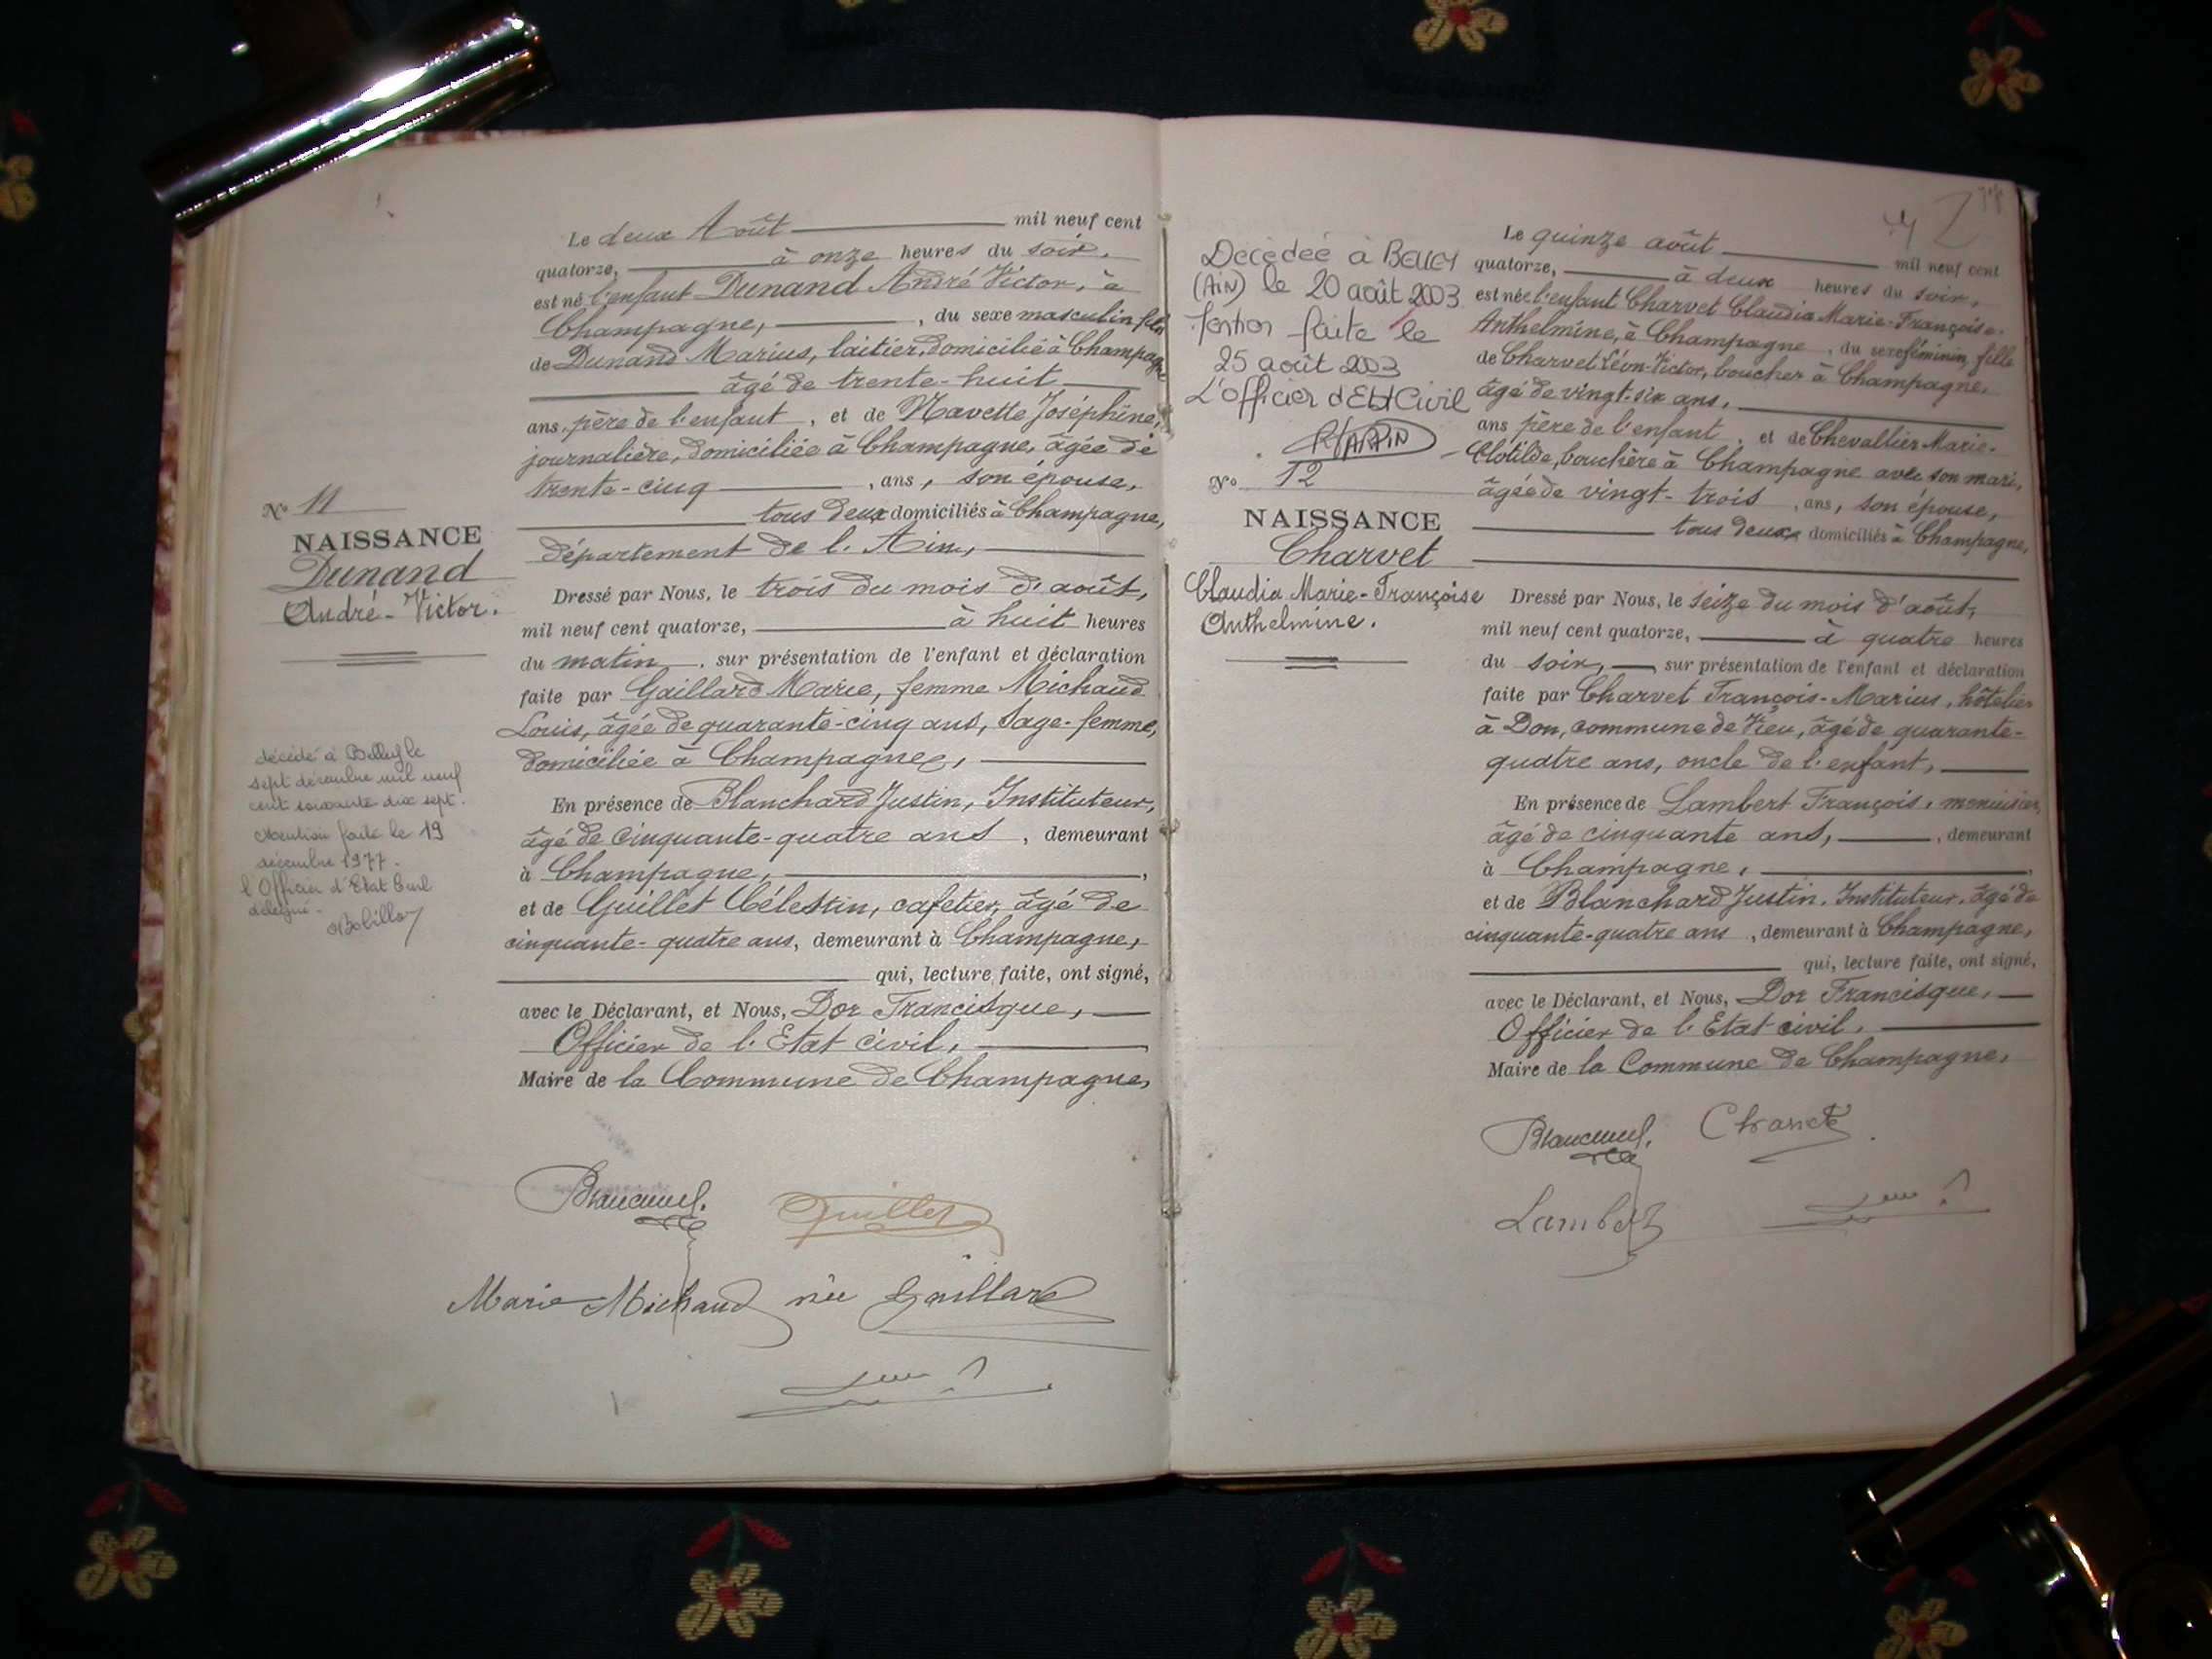 Le deux Août mil neuf cent
quatorze, à onze heures du soir,
est né l'enfant Dunand André Victor, à
Champagne, , du sexe masculin fils
de Dunand Marius, laitier, domicilié à Champagne
âgé de trente-huit
ans, père de l'enfant, et de Navette Joséphine,
journalière, domiciliée à Champagne, âgée de
trente-cinq , ans, son épouse,
tous deux domiciliés à Champagne,
département de l'Ain,
Dressé par Nous, le trois du mois d'août,
mil neuf cent quatorze, à huit heures
du matin, sur présentation de l'enfant et déclaration
faite par Gaillard Marie, femme Michaud
Louis, âgée de quarante-cinq ans, Sage-femme,
domiciliée à Champagne,
En présence de Blanchard Justin, Instituteur,
âgé de cinquante-quatre ans, demeurant
à Champagne,
et de Guillet Célestin, cafetier, âgé de
cinquante-quatre ans, demeurant à Champagne,
qui, lecture faite, ont signé,
avec le Déclarant, et Nous, Dor Francisque,
Officier de l'Etat civil,
Maire de la Commune de Champagne,
Guillet
Marie Michaud née Gaillard
No 11
NAISSANCE
Dunand
André-Victor.
décédé à Belley le
sept décembre mil neuf
cent soixante dix sept.
Mention faite le 19
décembre 1977.
l'Officier d'Etat Civil
délégué.
Décédée à BELLEY
(AiN) le 20 août 2003
faite le
25 août 2003
L'officier d'Etat Civil
No 12
NAISSANCE
Charvet
Claudia Marie-Françoise
Anthelmine.
Le quinze août mil neuf cent
quatorze, à deux heures du soir,
est née l'enfant Charvet Claudia Marie-Françoise-
Anthelmine, à Champagne, du sexe féminin, fille
de Charvet Léon-Victor, boucher à Champagne,
âgé de vingt-six ans,
ans père de l'enfant, et de Chevallier Marie-
Clotilde, bouchère à Champagne avec son mari,
âgée de vingt-trois, ans, son épouse,
tous deux domiciliés à Champagne,
Dressé par Nous, le seize du mois d'août,
mil neuf cent quatorze, à quatre heures
du soir, sur présentation de l'enfant et déclaration
faite par Charvet François-Marius, hôtelier
à Don, commune de Vieu, âgé de quarante-
quatre ans, oncle de l'enfant,
En présence de Lambert François, menuisier,
âgé de cinquante ans, , demeurant
à Champagne,
et de Blanchard Justin, Instituteur, âgé de
cinquante-quatre ans, demeurant à Champagne,
qui, lecture faite, ont signé,
avec le Déclarant, et Nous, Dor Francisque,
Officier de l'Etat civil,
Maire de la Commune de Champagne,
Lambert